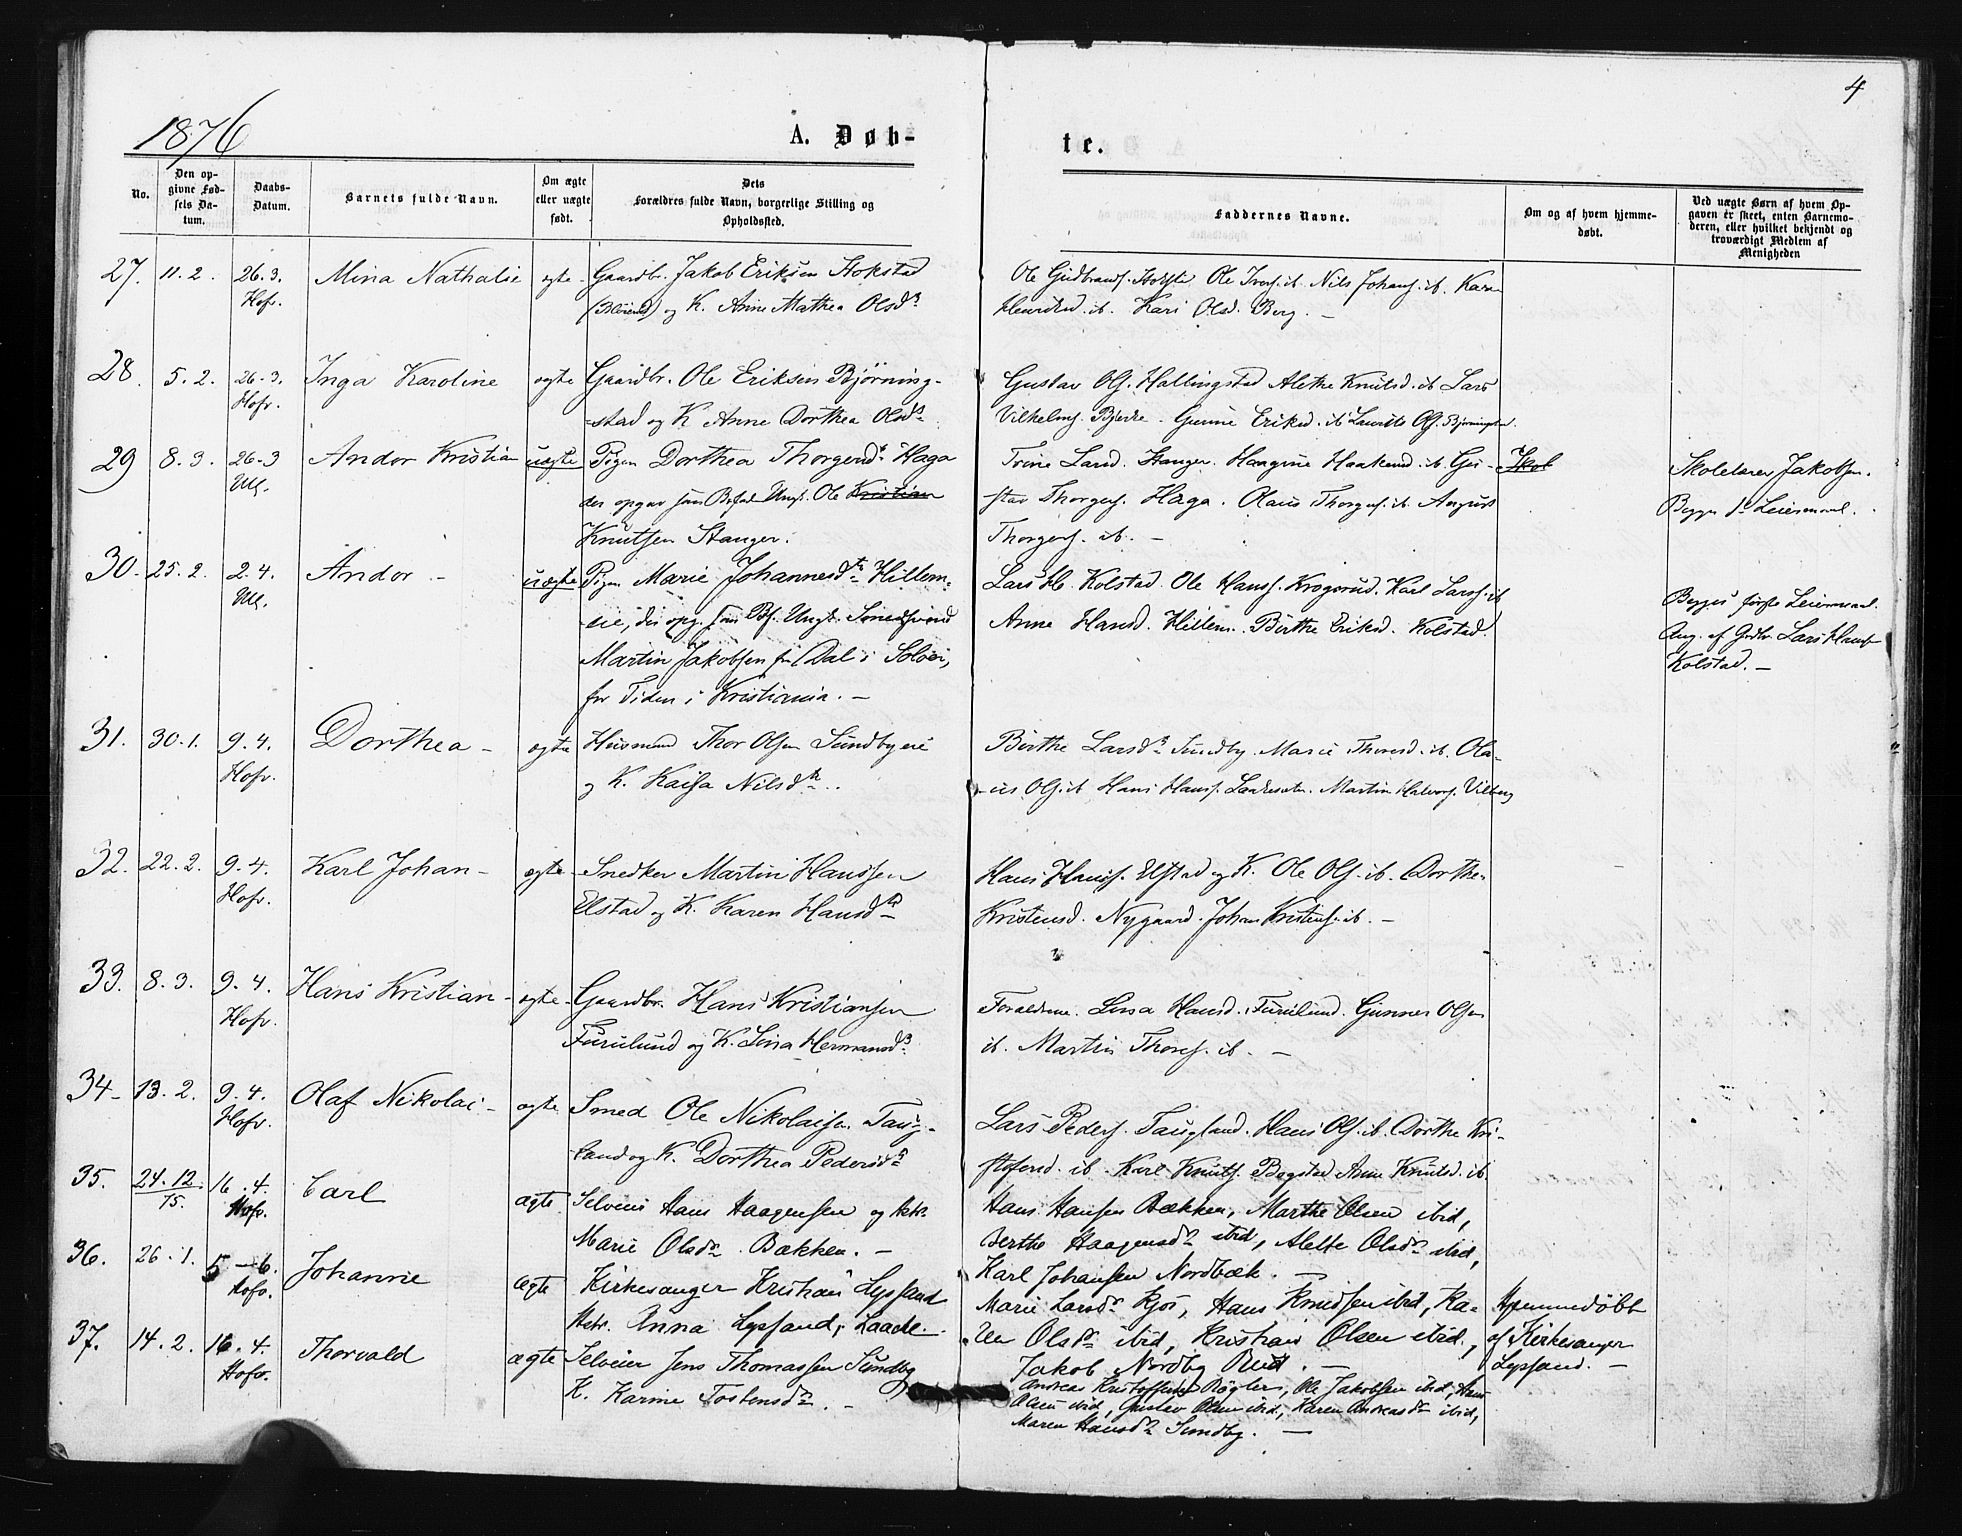 4
1876
A. Døb-
te.
No.
Den op-
givne Fød-
sels Da-
tum.
Daabs-
Datum.
Barnets fulde Navn.
Om ægte
eller uægte
født.
Dets
Forældres fulde Navn, borgerlige Stilling og
Opholdssted.
Faddernes Navne.
Om og af hvem hjemme-
døbt.
Ved uægte Børn af hvem Op-
gaven er skeet, enten Barnemo-
deren, eller hvilket bekjendt og
troværdigt Medlem af
Menigheden
27. 11. 2. 26. 3. Mina Nathalie ægte Gaardbr. Jakob Eriksen Hokstad
Hofv. og K. Anne Mathea Olsdr
Ole Gudbrands. Ole Ivers. ib. Nils Johans. ib. Karen
ib. Kari Olsd. Berg. —
28. 5. 2. 26. 3. Inga Karoline ægte Gaardbr. Ole Eriksen Bjørning-
Hofv. stad og K. Anne Dorthea Olsdr
Gustav Ols. Hallingstad Alethe Knutsd. ib Lars
Vilhelms. Bjerke. Gunne Eriksd. ib Laurits Ols. Bjørningstad.
29 8. 3. 26-3 Andor Kristian uægte Pigen Dorthea Thorgersd. Haga
Ull. der opgav som Ungk. Ole Kristian
Knutsen Stanger.
Trine Larsd. Stanger. Haakensd. ib. Gu-
stav Thorgers. Haga. Olaus Thorgers. ib. August
Thorgers. ib. —
Skol
Skolelærer Jakobsen.
Begges 1ste Leiermaal.
30. 25. 2. 2. 4. Andor — uægte Pigen Marie Johannesdtr Hillem-
Ull. eie, der opg. som Bf. Ungk. Smedsvend
Martin Jakobsen fra Dal i Soløer,
for Tiden i Kristiania. —
Lars H. Kolstad. Ole Hanss. Krogsrud. Karl Larss. ib
Anne Hansd. Hillem. Birthe Eriksd. Kolstad.
Begges første Leiermaal.
Ang. af Grdbr. Lars Hansen
Kolstad. —
31. 30. 1. 9. 4. Dorthea — ægte Husmand Thor Olsen Sundbyeie
Hofv. og K. Kaisa Nilsdtr.
Birthe Larsdr Sundby. Marie Thoresd. ib. Ola-
us Ols. ib Hans Hanss. Martin Halvors. Vilberg
32. 22. 2. 9. 4. Karl Johan — ægte Snedker Martin Hanssen
Hofv. Elstad og K. Karen Hansdr
Hans Hanss. Elstad og K. Ole Ols. ib. Dorthe
Kristensd. Nygaard. Johan Kristens. ib. —
33. 8. 3. 9. 4. Hans Kristian — ægte Gaardbr. Hans Kristiansen
Hofv. Furulund og K. Lina Hermansdr
Forældrene. Lina Hansd. Furulund. Gunner Olsen
ib. Martin Thores. ib. —
34 — 13. 2. 9. 4. Olaf Nikolai — ægte Smed Ole Nikolaisen Taug-
Hofv. land og K. Dorthea Pedersdr
Lars Peders. Taugland. Hans Ols. ib. Dorthe Kri-
stofersd. ib. Karl Knuts. Bogstad Anne Knutsd. ib.
35. 24. 12. 16. 4. Carl ægte Selveier Hans Haagensen og Hstr.
75. Hofv. Marie Olsdr Bækken. —
Hans Hansen Bækken, Marthe Olsen ibid,
Berthe Haagensdr ibid, Alette Olsdr ibid,
Karl Johansen Nordbæk. —
36. 26. 1. 5 — 6. Johanne ægte Kirkesanger Kristian Lyssand
Hofv. Hstr. Anna Lyssand,
Marie Larsdr Kjos, Hans Knudsen ibid, Ka-
ren Olsdr ibid, Kristian Olsen ibid.,
Jakob Nordby Rud. —
Hjemmedøbt
af Kirkesanger
Lyssand. —
37. 14. 2. 16. 4. Thorvald ægte Selveier Jens Thomassen Sundby
Hofv. K. Karine Tostensdr. —
Andreas Kristoffersen Røgler, Ole Jakobsen ibid, Hans
Olsen ibid, Gustav Olsen ibid., Karen Andreasdr ibid,
Maren Hansdr Sundby. —